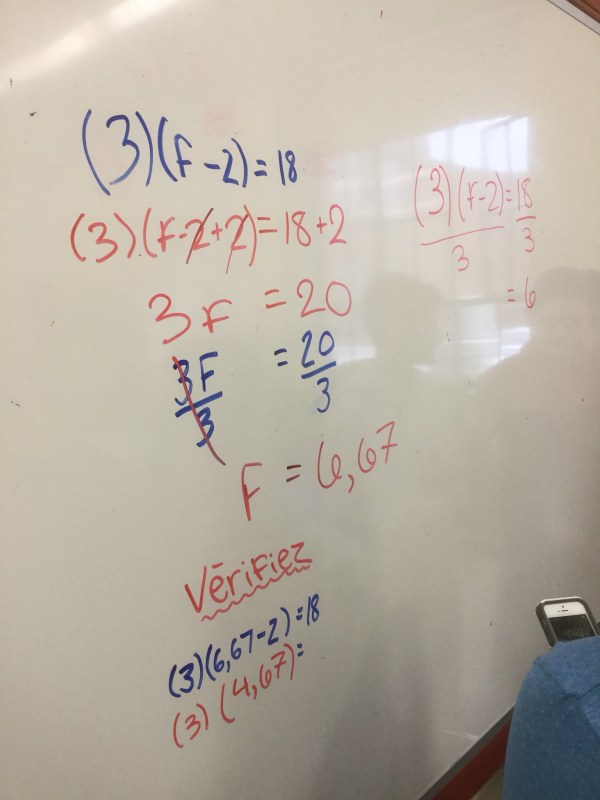 (3)(F-2)=18
(3).(F-2+2)=18+2
3F = 20
3F/3 = 20/3
F = 6,67
Vérifiez
(3)(6,67-2)=18
(3)(4,67)=
(3)(F-2)/3=18/3
=6